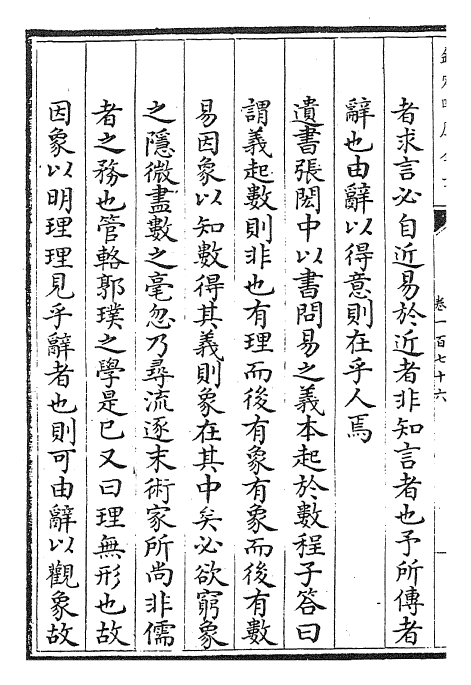 卷一百七十六
者求言必自近易於近者非知言者也予所傳者
辭也由辭以得意則在乎人焉
遺書張閎中以書問易之義本起於數程子答曰
謂義起數則非也有理而後有象有象而後有數
易因象以知數得其義則象在其中矣必欲窮象
之隱微盡數之毫忽乃尋流逐末術家所尚非儒
者之務也管輅郭璞之學是已又曰理無形也故
因象以明理理見乎辭者也則可由辭以觀象故